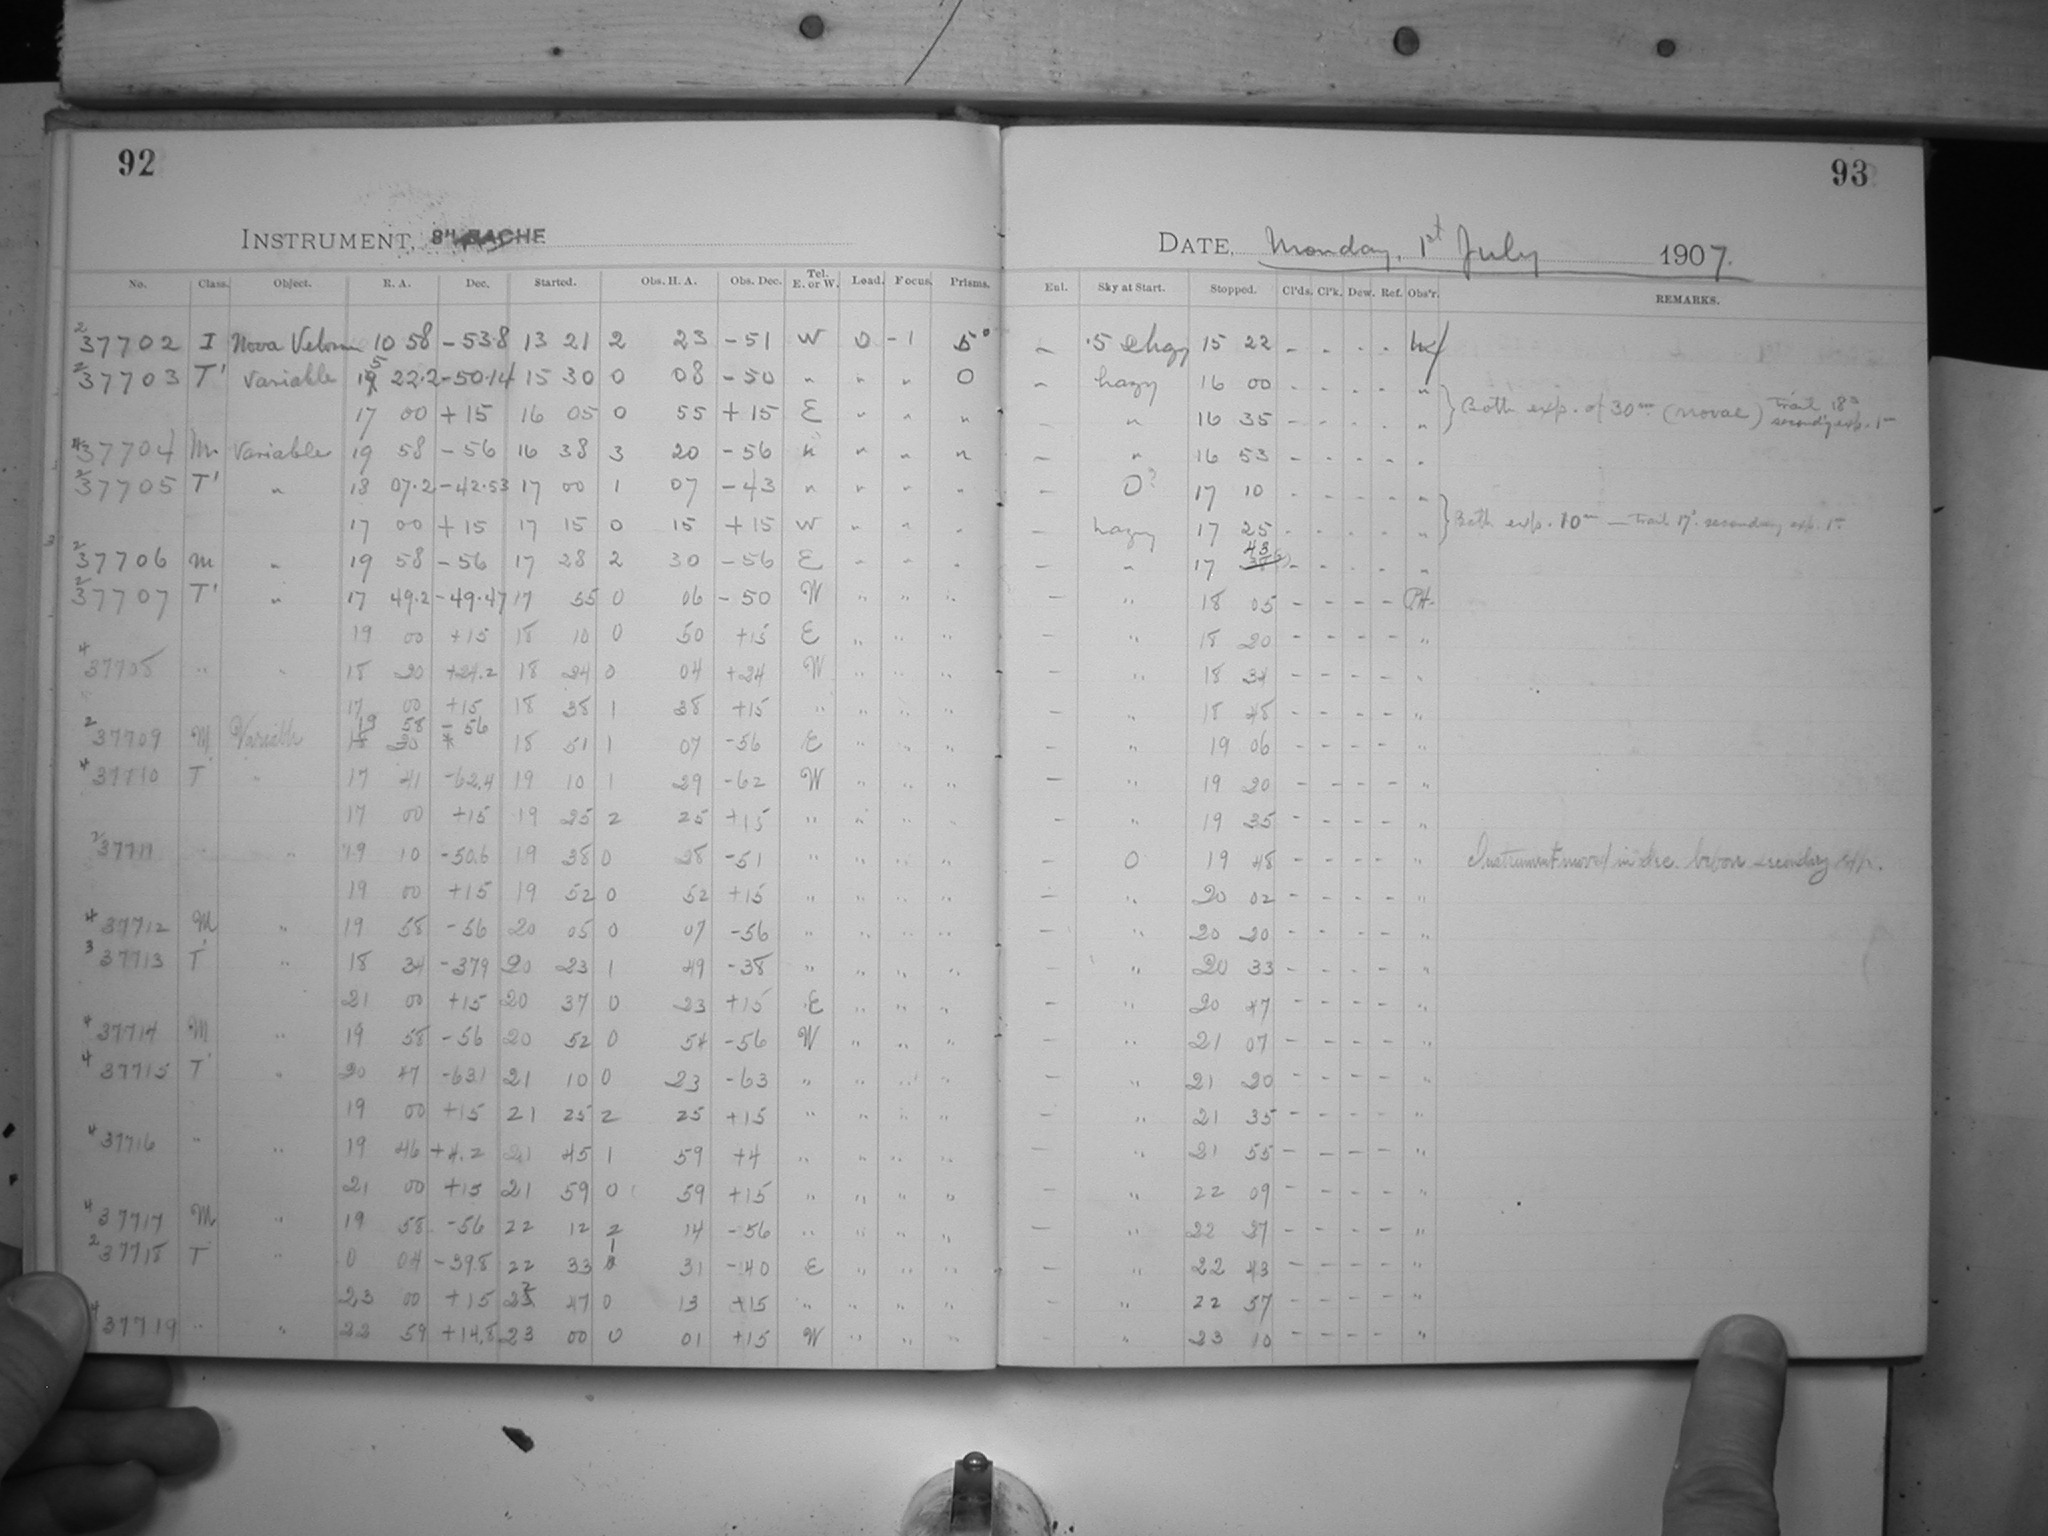 92
93
INSTRUMENT, 8" BACHE
DATE, Monday, 1st July 1907.
No. Class. Object. R. A. Dec. Started. Obs. H. A. Obs. Dec. Tel. E. or W. Load. Focus. Prisms. Enl. Sky at Start. Stopped. Cl'ds. Cl'k. Dew. Ref. Obs'r. REMARKS.
2 37702 I Nova Velorum 10 58 -53.8 13 21 2 23 -51 W 0 -1 5° - .5 15 22 - - - -
2 37703 T' Variable 15 22.2 -50.14 15 30 0 08 -50 " " " 0 - hazy 16 00 - - - - "
17 00 +15 16 05 0 55 +15 E " " " - " 16 35 - - - - " } Both exp. of 30m (novae) Trail 18s secondy exp. 1m
4 37704 M. Variable 19 58 -56 16 38 3 20 -56 " " " " - " 16 53 - - - - "
2 37705 T' " 18 07.2 -42.53 17 00 1 07 -43 " " " " - 0? 17 10 - - - - "
17 00 +15 17 15 0 15 +15 W " " " - hazy 17 25 - - - - " } Both exp. 10m - Trail 17s. secondary exp. 1m
2 37706 M " 19 58 -56 17 28 2 30 -56 E " " " - " 17 43 - - - - "
2 37707 T' " 17 49.2 -49.47 17 55 0 06 -50 W " " " - " 18 05 - - - -
19 00 +15 18 10 0 50 +15 E " " " - " 18 20 - - - - "
4 37708 " " 18 20 +24.2 18 24 0 04 +24 W " " " - " 18 34 - - - - "
17 00 +15 18 38 1 38 +15 " " " " - " 18 48 - - - - "
2 37709 M Variable 19 58 -56 18 51 1 07 -56 E " " " - " 19 06 - - - - "
4 37710 T' " 17 41 -62.4 19 10 1 29 -62 W " " " - " 19 20 - - - - "
17 00 +15 19 25 2 25 +15 " " " " - " 19 35 - - - - "
2 37711 " " 19 10 -50.6 19 38 0 28 -51 " " " " - 0 19 48 - - - - " Instrument moved in dec. before secondary exp.
19 00 +15 19 52 0 52 +15 " " " " - " 20 02 - - - - "
4 37712 M " 19 58 -56 20 05 0 07 -56 " " " " - " 20 20 - - - - "
3 37713 T' " 18 34 -37.9 20 23 1 49 -38 " " " " - " 20 33 - - - - "
21 00 +15 20 37 0 23 +15 E " " " - " 20 47 - - - - "
4 37714 M " 19 58 -56 20 52 0 54 -56 W " " " - " 21 07 - - - - "
4 37715 T' " 20 47 -63.1 21 10 0 23 -63 " " " " - " 21 20 - - - - "
19 00 +15 21 25 2 25 +15 " " " " - " 21 35 - - - - "
4 37716 " " 19 46 +4.2 21 45 1 59 +4 " " " " - " 21 55 - - - - "
21 00 +15 21 59 0 59 +15 " " " " - " 22 09 - - - - "
4 37717 M " 19 58 -56 22 12 2 14 -56 " " " " - " 22 27 - - - - "
2 37718 T' " 0 04 -39.8 22 33 1 31 -40 E " " " - " 22 43 - - - - "
23 00 +15 22 47 0 13 +15 " " " " - " 22 57 - - - - "
4 37719 " " 22 59 +14.8 23 00 0 01 +15 W " " " - " 23 10 - - - - "